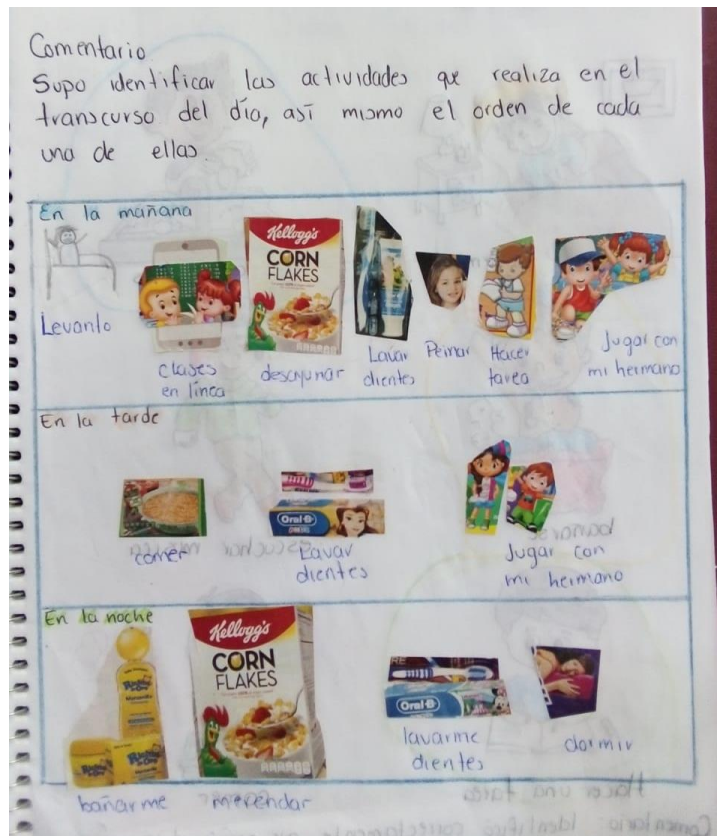 Comentario
Supo identificar las actividades que realiza en el
transcurso del día, así mismo el orden de cada
una de ellas.
En la mañana
Levanto
clases
en línea
Kellogg's
CORN
FLAKES
desayunar
Lavar
dientes
Peinar
Hacer
tarea
Jugar con
mi hermano
En la tarde
comer
Oral-B
Lavar
dientes
Jugar con
mi hermano
En la noche
bañarme
Kellogg's
CORN
FLAKES
merendar
Oral-B
lavarme
dientes
dormir